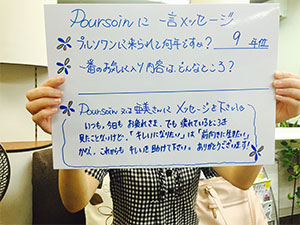 Poursoinに一言メッセージ
プルソワンに来られて何年ですか? 9年位
一番のお気に入り内容は、どんなところ?
Poursoin 又は 亜美さんに メッセージを下さい。
いつも、今日も お疲れさま。でも 疲れているところを
見たことないけど、「キレイになりたい」は「前向きに生きたい」
かな。これからも キレイを助けて下さい。ありがとうございます!